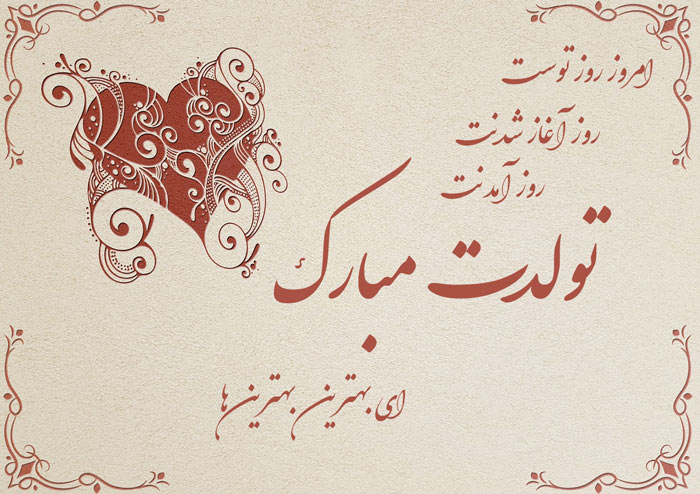 امروز روز توست
روز آغاز شدنت
روز آمدنت
تولدت مبارک
ای بهترین بهترین ها